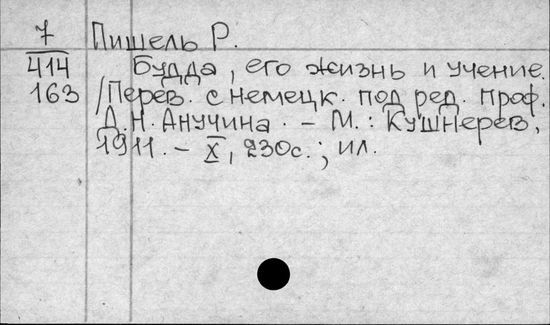 7 Пишель Р.
414 Будда, его жизнь и учение.
163 /Перев. с немецк. под ред. проф.
Д.Н. Анучина. – М.: Кушнерев,
1911. – X, 230с.; ил.